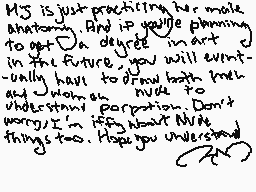 MJ is just practicing her male
anatomy. And if you're planning
to get a degree in art
in the future, you will event-
-ually have to draw both men
and women nude to
understand porpotion. Don't
worry, I'm iffy about Nude
things too. Hope you understand